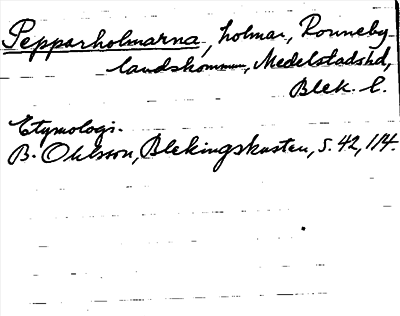 Pepparholmarna, holmar, Ronneby-
landskommun, Medelstadshd,
Blek. l.
Etymologi.
B. Ohlsson, Blekingskusten, s. 42, 114.